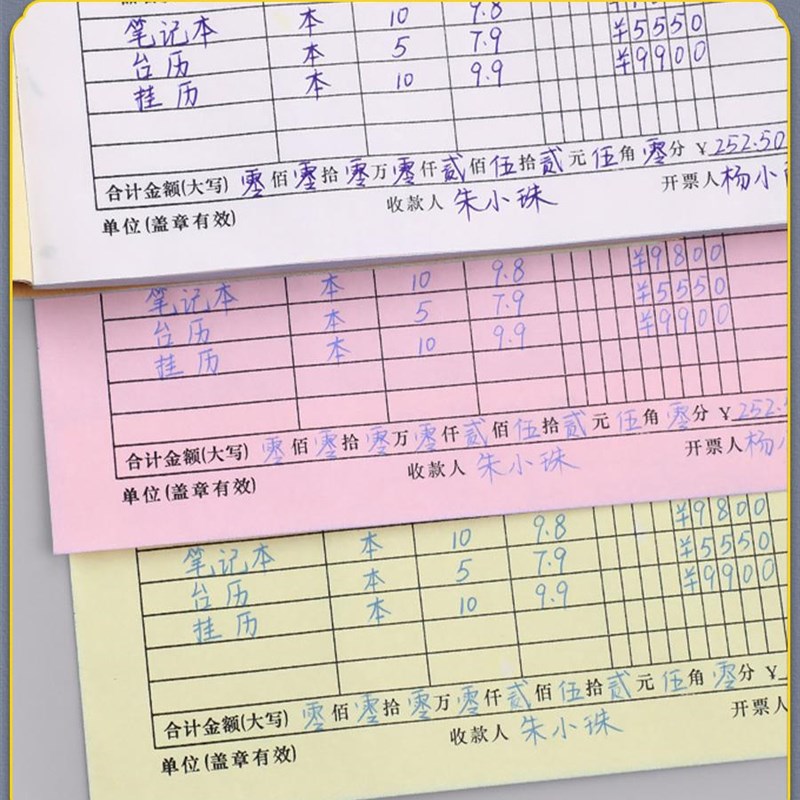 笔记本 本 10 9.8
台历 本 5 7.9 ¥5550
挂历 本 10 9.9 ¥9900
合计金额(大写) 零佰零拾零万零仟贰佰伍拾贰元伍角零分 ¥252.50
单位(盖章有效) 收款人 朱小珠 开票人 杨小
笔记本 本 10 9.8 ¥9800
台历 本 5 7.9 ¥5550
挂历 本 10 9.9 ¥9900
合计金额(大写) 零佰零拾零万零仟贰佰伍拾贰元伍角零分 ¥252.
单位(盖章有效) 收款人 朱小珠 开票人 杨小
笔记本 本 10 9.8 ¥9800
台历 本 5 7.9 ¥5550
挂历 本 10 9.9 ¥9900
合计金额(大写) 零佰零拾零万零仟贰佰伍拾贰元伍角零分 ¥
单位(盖章有效) 收款人 朱小珠 开票人